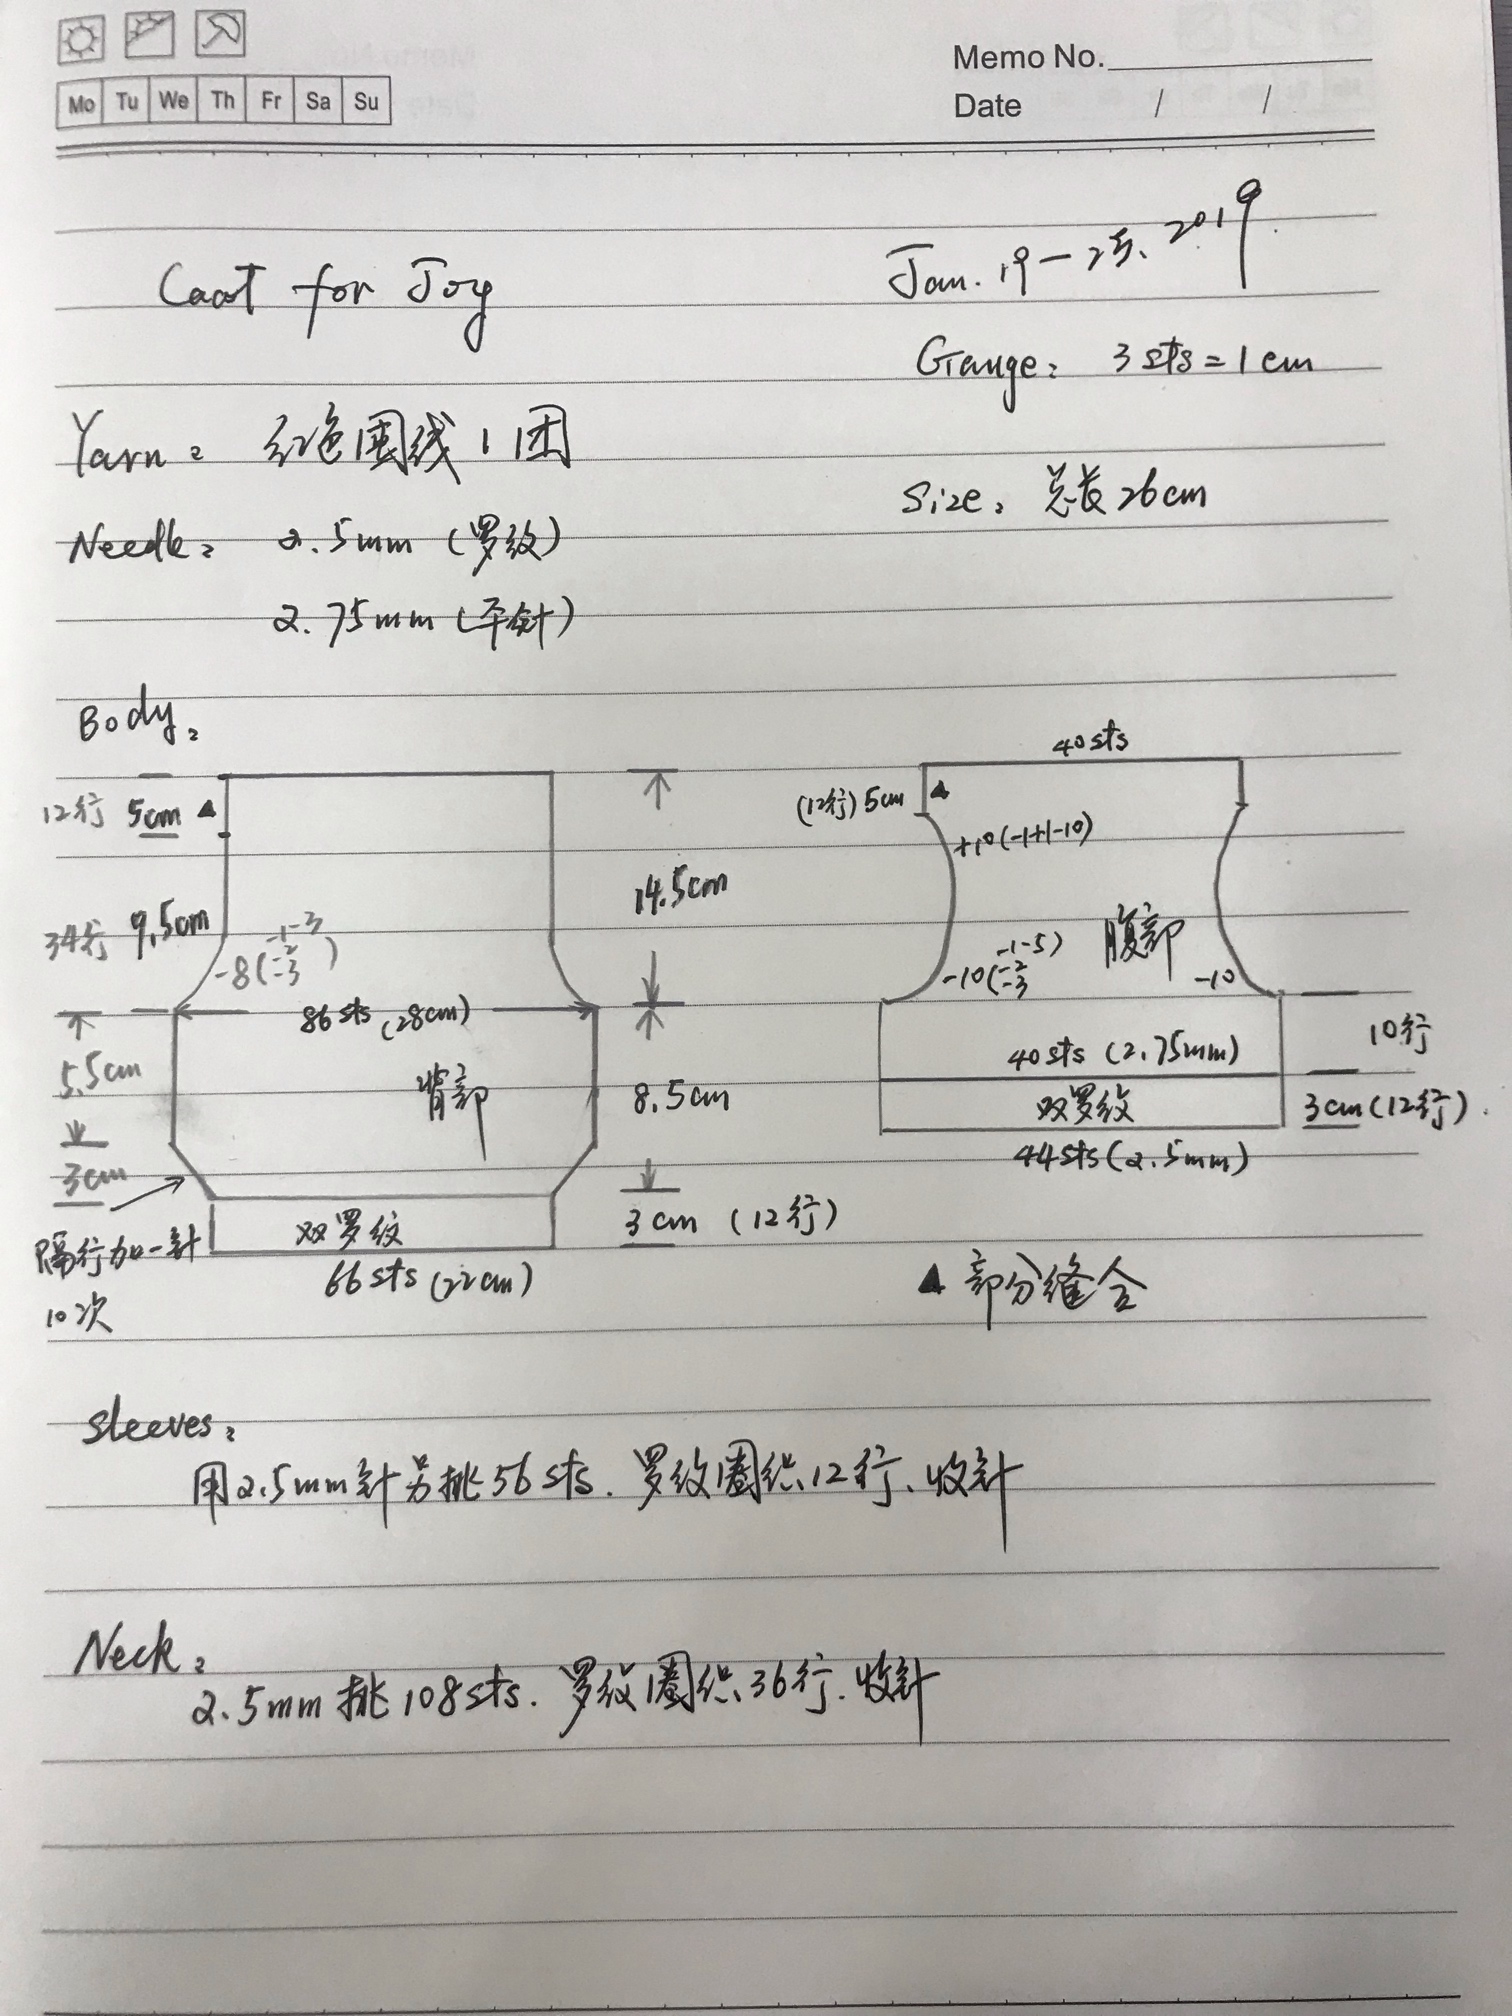 Mo Tu We Th Fr Sa Su
Memo No.
Date / /
Caat for Joy
Jan. 19-25, 2019
Gauge: 3 sts = 1 cm
Yarn: 红色围线 1 团
Size: 总长 26cm
Needle: 2.5mm (罗纹)
2.75mm (平针)
Body:
12行 5cm ▲
34行 9.5cm
-8(-1-3
-2
-3)
14.5cm
86 sts (28cm)
5.5cm
背部
8.5cm
3cm
隔行加一针
10次
双罗纹
3cm (12行)
66 sts (22cm)
40sts
(12行) 5cm ▲
+10(-1+1-10)
腹部
-10(-1-5)
-2
-3
-10
10行
40sts (2.75mm)
双罗纹
3cm (12行).
44sts (2.5mm)
▲ 部分缝合
Sleeves:
用2.5mm针另挑56sts. 罗纹圈织12行、收针
Neck:
2.5mm挑108sts. 罗纹圈织36行. 收针